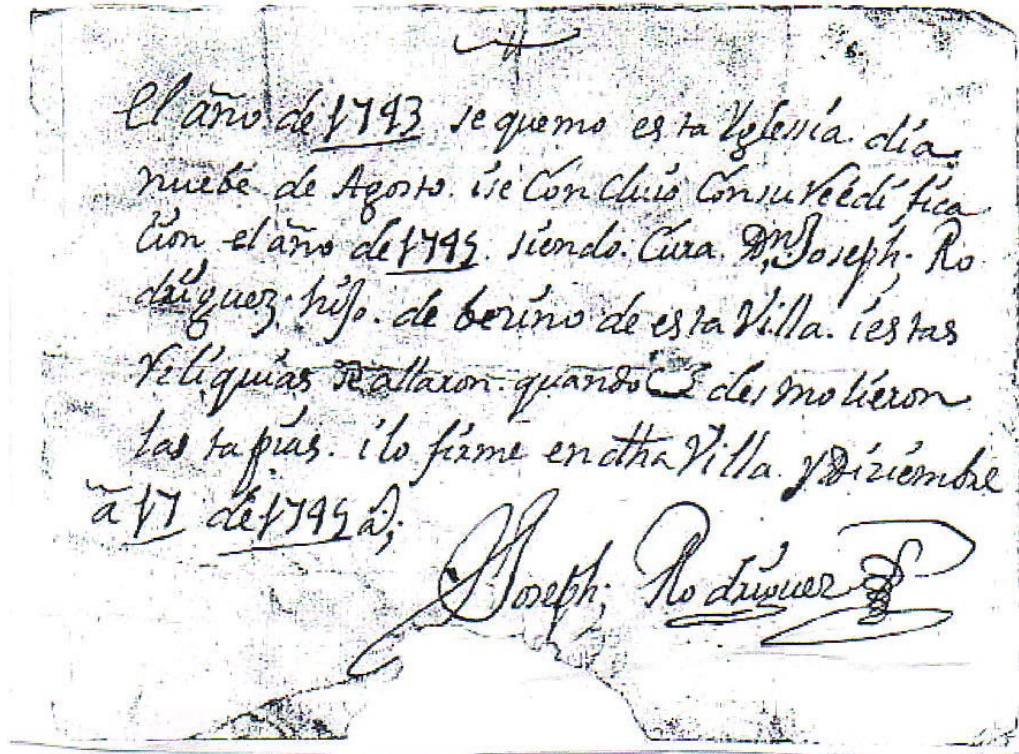 El año de 1743 se quemo esta Yglessia. día.
nuebe de Agosto. ise Concluió Consu Reedífica
cion el año de 1745. siendo. Cura. Dn. Joseph; Ro
dríguez; hijo. de bezíno de esta Villa. iestas
Reliquias se allaron quando desmolieron
las tapias. i lo fírme en dha Villa. y Diziembre
a 17 de 1745 a;
Joseph; Rodríguez